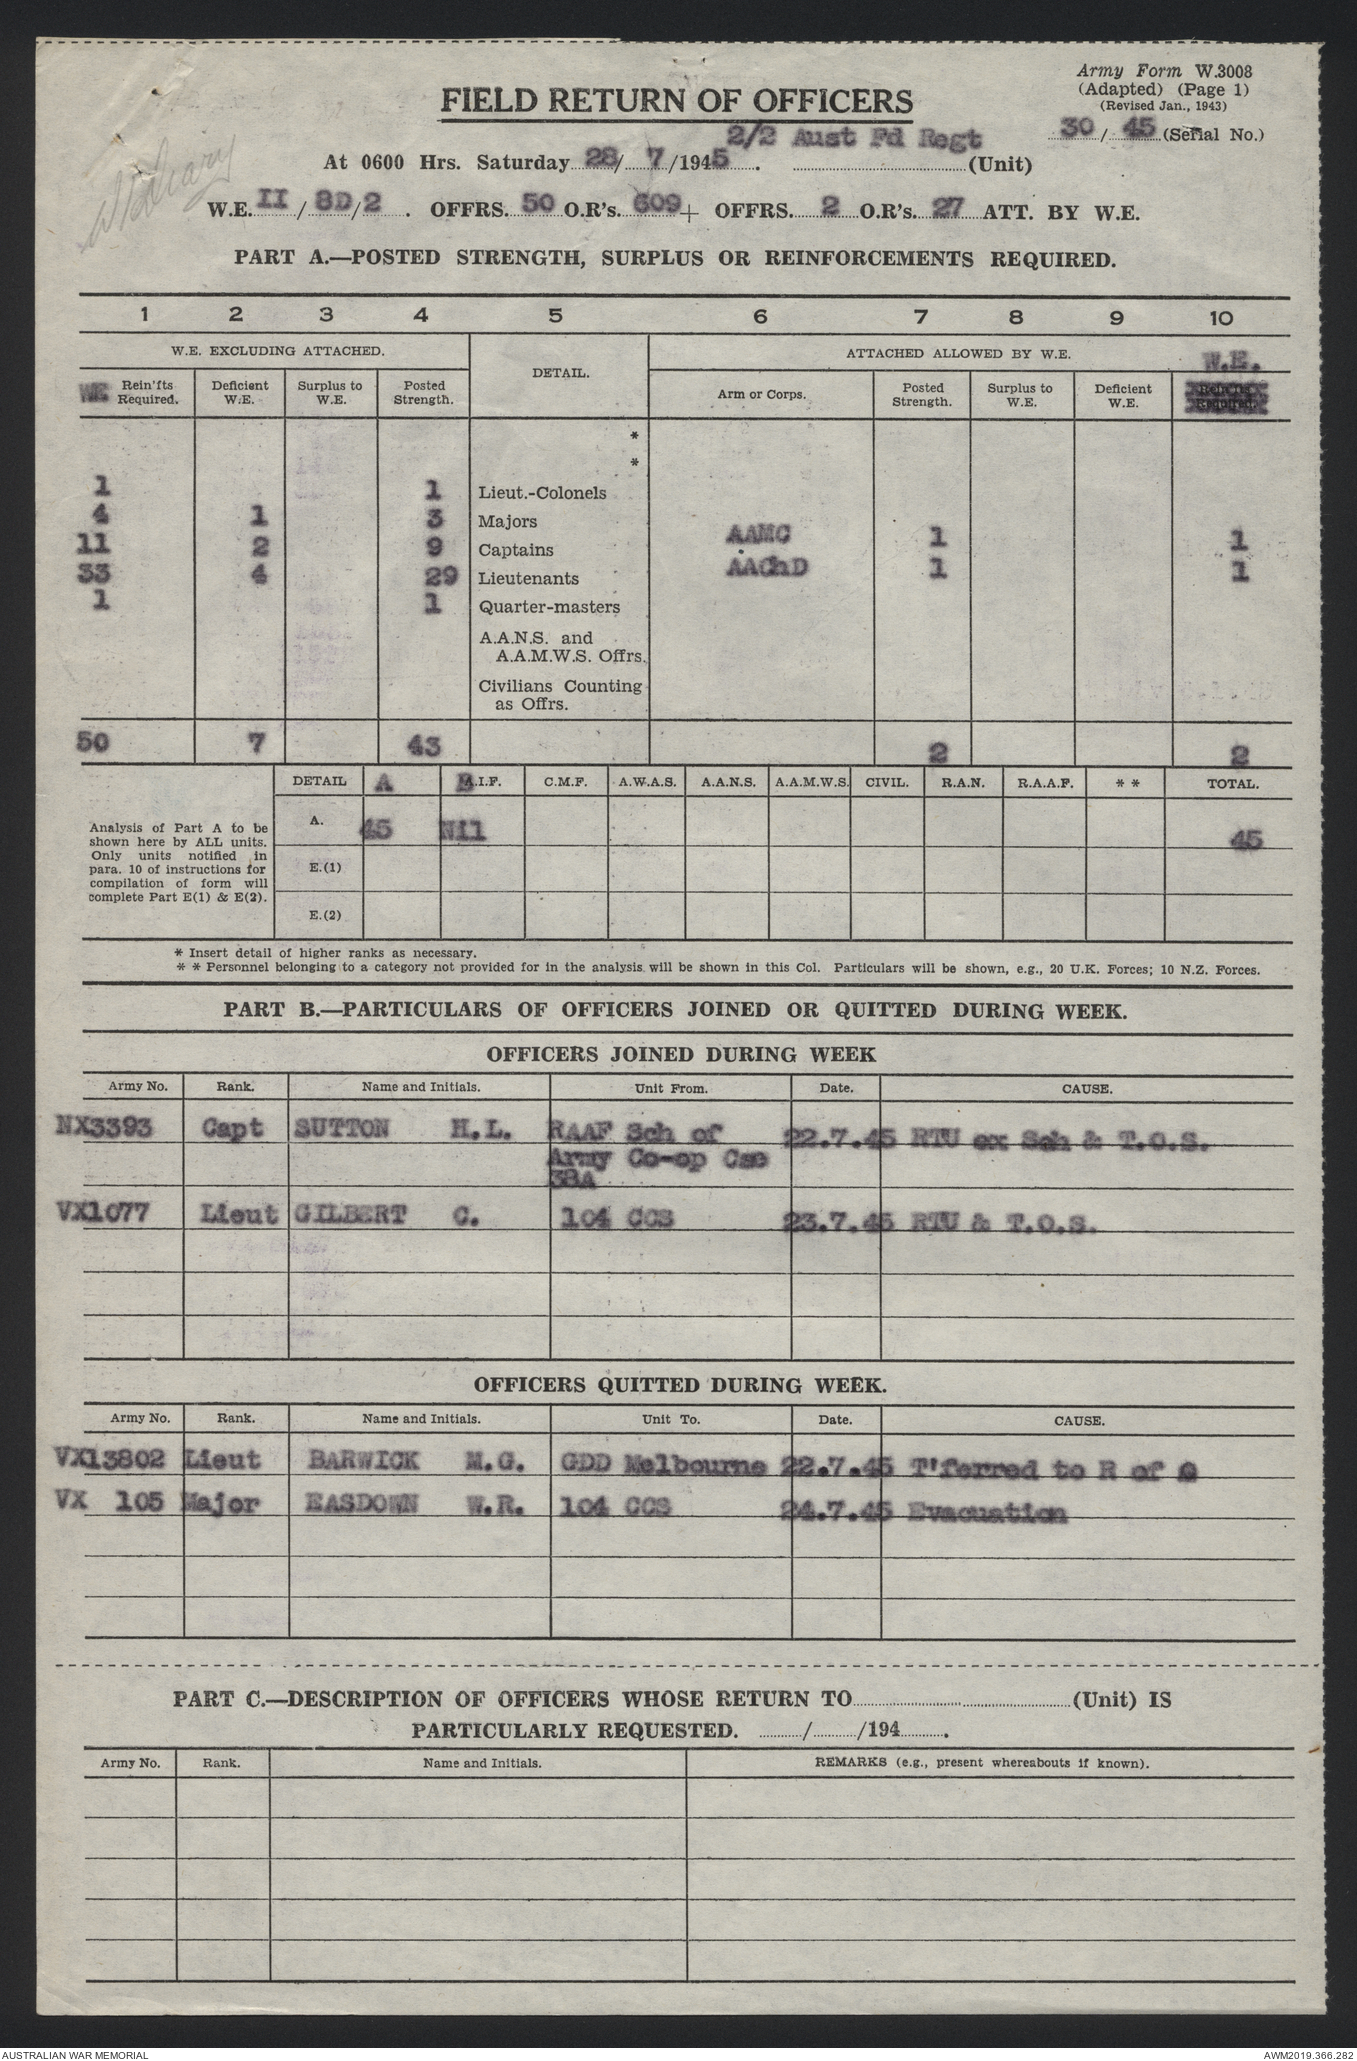 Army Form W.3008
(Adapted) (Page 1)
(Revised Jan., 1943)
FIELD RETURN OF OFFICERS
30 / 45 (Serial No.)
2/2 Aust Fd Regt
At 0600 Hrs. Saturday 28/ 7 /1945 . (Unit)
W.E. II / 8D/2 . OFFRS. 50 O.R's. 609 + OFFRS. 2 O.R's. 27 ATT. BY W.E.
PART A.—POSTED STRENGTH, SURPLUS OR REINFORCEMENTS REQUIRED.
1 2 3 4 5 6 7 8 9 10
W.E. EXCLUDING ATTACHED. DETAIL. ATTACHED ALLOWED BY W.E. W.E.
WE Rein'fts Required. Deficient W.E. Surplus to W.E. Posted Strength. Arm or Corps. Posted Strength. Surplus to W.E. Deficient W.E.
*
*
1 1 Lieut.-Colonels
4 1 3 Majors
11 2 9 Captains AAMC 1 1
33 4 29 Lieutenants AAChD 1 1
1 1 Quarter-masters
A.A.N.S. and
A.A.M.W.S. Offrs.
Civilians Counting
as Offrs.
50 7 43 2 2
DETAIL A A.I.F. C.M.F. A.W.A.S. A.A.N.S. A.A.M.W.S. CIVIL. R.A.N. R.A.A.F. * * TOTAL.
Analysis of Part A to be
shown here by ALL units.
Only units notified in
para. 10 of instructions for
compilation of form will
complete Part E(1) & E(2).
A. 45 Nil 45
E.(1)
E.(2)
* Insert detail of higher ranks as necessary.
* * Personnel belonging to a category not provided for in the analysis will be shown in this Col. Particulars will be shown, e.g., 20 U.K. Forces; 10 N.Z. Forces.
PART B.—PARTICULARS OF OFFICERS JOINED OR QUITTED DURING WEEK.
OFFICERS JOINED DURING WEEK
Army No. Rank. Name and Initials. Unit From. Date. CAUSE.
NX3393 Capt SUTTON H.L. RAAF Sch of 22.7.45 RTU ex Sch & T.O.S.
Army Co-op Cse
38A
VX1077 Lieut GILBERT C. 104 CCS 23.7.45 RTU & T.O.S.
OFFICERS QUITTED DURING WEEK.
Army No. Rank. Name and Initials. Unit To. Date. CAUSE.
VX13802 Lieut BARWICK M.G. GDD Melbourne 22.7.45 T'ferred to R of O
VX 105 Major EASDOWN W.R. 104 CCS 24.7.45 Evacuation
PART C.—DESCRIPTION OF OFFICERS WHOSE RETURN TO (Unit) IS
PARTICULARLY REQUESTED. / /194 .
Army No. Rank. Name and Initials. REMARKS (e.g., present whereabouts if known).
AUSTRALIAN WAR MEMORIAL AWM2019.366.282